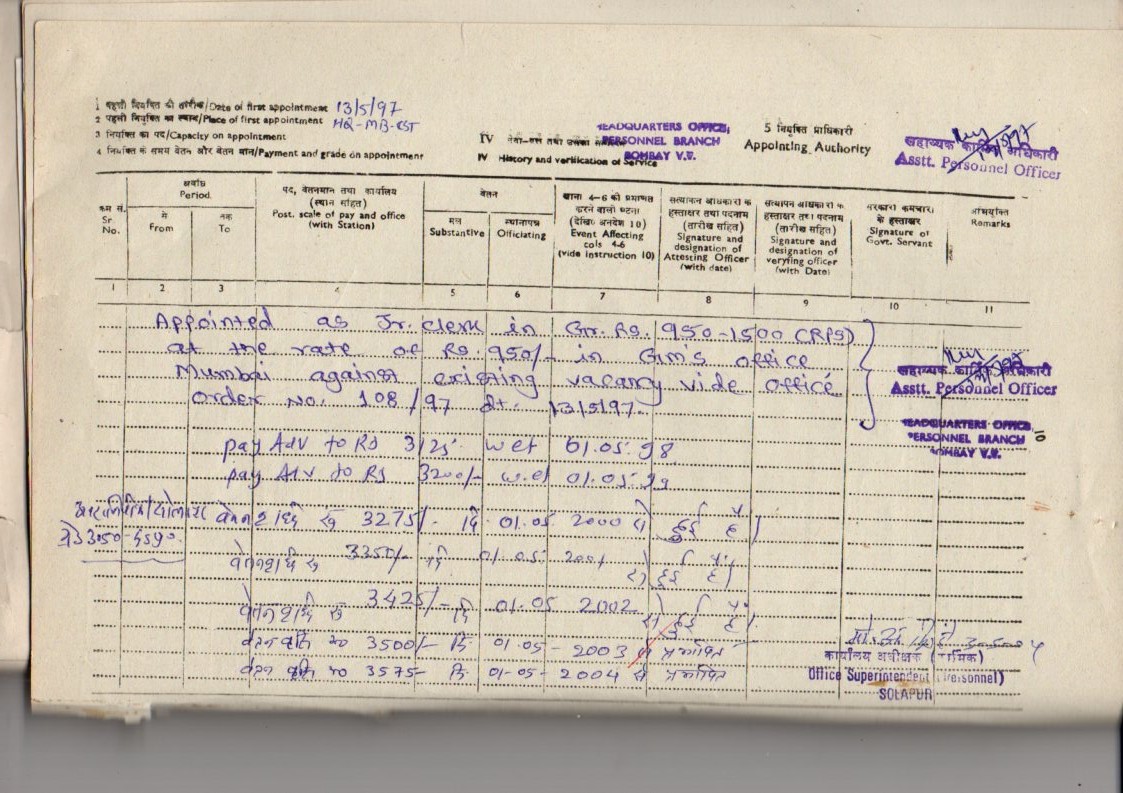 1 पहली नियुक्ति की तारीख/Date of first appointment 13/5/97
2 पहली नियुक्ति का स्थान/Place of first appointment HQ-MB-CST
3 नियुक्ति का पद/Capacity on appointment
4 नियुक्ति के समय वेतन और वेतन मान/Payment and grade on appointment
IV सेवा-वृत्त तथा उसका
IV History and verification of Service
HEADQUARTERS OFFICE,
PERSONNEL BRANCH
BOMBAY V.T.
5 नियुक्ति प्राधिकारी
Appointing Authority
सहाय्यक कार्मिक अधिकारी
Asstt. Personnel Officer
क्रम सं. Sr. No.
अवधि Period
से From
तक To
पद, वेतनमान तथा कार्यालय (स्थान सहित) Post. scale of pay and office (with Station)
वेतन
मूल Substantive
स्थानापन्न Officiating
खाना 4-6 को प्रभावित करने वाली घटना (देखिए अनुदेश 10) Event Affecting cols 4-6 (vide instruction 10)
सत्यापन अधिकारी के हस्ताक्षर तथा पदनाम (तारीख सहित) Signature and designation of Attesting Officer (with date)
सत्यापन अधिकारी के हस्ताक्षर तथा पदनाम (तारीख सहित) Signature and designation of veryfing officer (with Date)
सरकारी कर्मचारी के हस्ताक्षर Signature of Govt. Servant
अभियुक्ति Remarks
1 2 3 4 5 6 7 8 9 10 11
Appointed as Jr. clerk in Gr. Rs. 950-1500 (RPS)
at the rate of Rs. 950/- in GMS office
Mumbai against existing vacancy vide office
order No. 108/97 dt. 13/5/97
सहाय्यक कार्मिक अधिकारी
Asstt. Personnel Officer
HEADQUARTERS OFFICE,
PERSONNEL BRANCH
BOMBAY V.T.
pay Adv to Rs 3125 wef 01.05.98
pay Adv to Rs 3200/- w.ef 01.05.99
वेतन वृद्धि रु 3275/- दि 01.05 2000 से हुई है
ग्रे 3050-4590
वेतन वृद्धि रु 3350/- दि 01.05. 2001 से हुई है
वेतन वृद्धि रु 3425/- दि 01.05 2002 से हुई है
वेतन वृद्धि रु 3500/- दि 01.05-2003 से प्रभावित
वेतन वृद्धि रु 3575- दि 01-05-2004 से प्रभावित
कार्यालय अधीक्षक (कार्मिक)
Office Superintendent (Personnel)
SOLAPUR